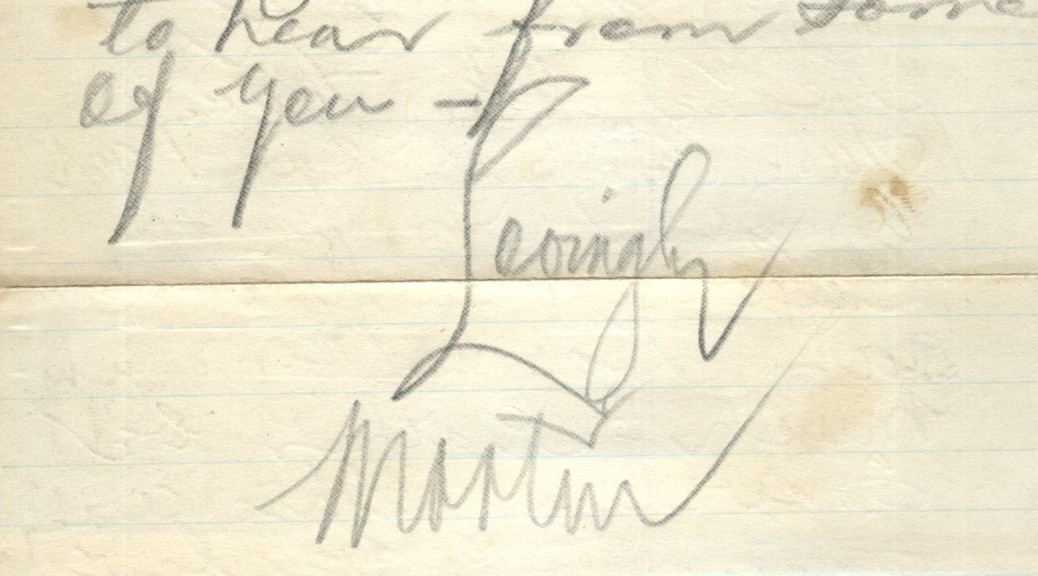 to hear from some
of you -
Lovingly
Martin